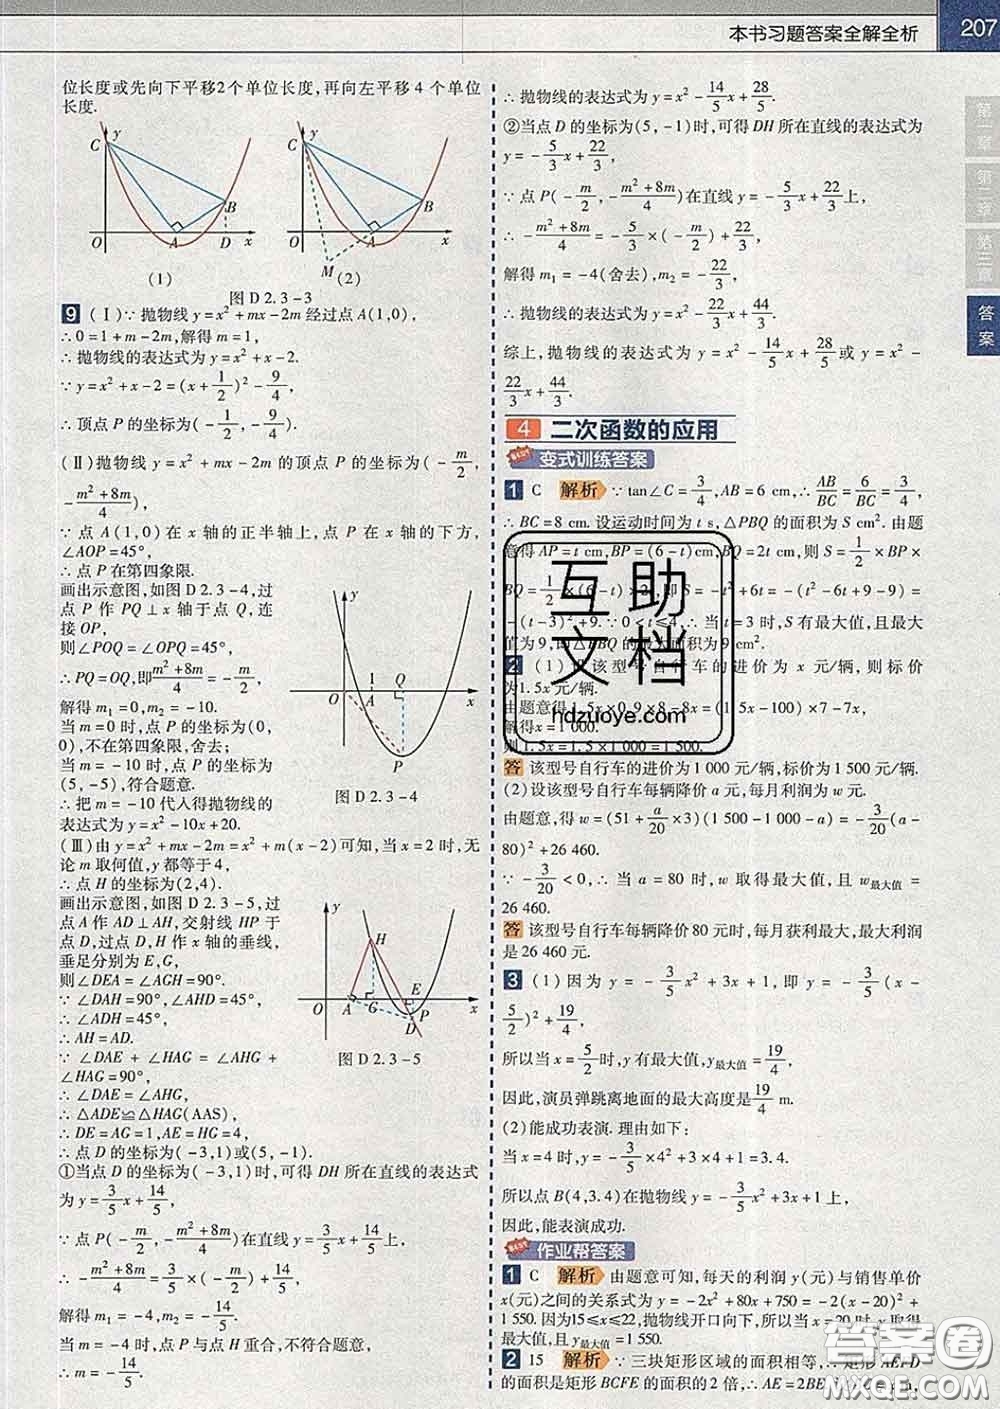 本书习题答案全解全析
207
位长度或先向下平移2个单位长度,再向左平移 4 个单位
长度.
(1)
(2)
图 D 2.3-3
9 (Ⅰ)∵ 抛物线 y=x²+mx-2m 经过点 A(1,0),
∴0=1+m-2m,解得 m=1,
∴ 抛物线的表达式为 y=x²+x-2.
∵y=x²+x-2=(x+1/2)²-9/4,
∴ 顶点 P 的坐标为(-1/2,-9/4).
(Ⅱ)抛物线 y=x²+mx-2m 的顶点 P 的坐标为(-m/2,
-(m²+8m)/4).
∵ 点 A(1,0)在 x 轴的正半轴上,点 P 在 x 轴的下方,
∠AOP=45°,
∴ 点 P 在第四象限.
画出示意图,如图 D 2.3-4,过
点 P 作 PQ⊥x 轴于点 Q,连
接 OP,
则∠POQ=∠OPQ=45°,
∴PQ=OQ,即(m²+8m)/4=-m/2,
解得 m₁=0,m₂=-10.
当 m=0时,点 P 的坐标为(0,
0),不在第四象限,舍去;
当 m=-10 时,点 P 的坐标为
(5,-5),符合题意.
∴ 把 m=-10代入得抛物线的
表达式为 y=x²-10x+20.
图 D 2.3-4
(Ⅲ)由 y=x²+mx-2m=x²+m(x-2)可知,当 x=2 时,无
论 m 取何值,y 都等于 4,
∴ 点 H 的坐标为(2,4).
画出示意图,如图 D 2.3-5,过
点 A 作 AD⊥AH,交射线 HP 于
点 D,过点 D,H 作 x 轴的垂线,
垂足分别为 E,G,
则∠DEA=∠AGH=90°.
∵ ∠DAH=90°,∠AHD=45°,
∴∠ADH=45°,
∴AH=AD.
∵ ∠DAE+∠HAG=∠AHG+
∠HAG=90°,
∴ ∠DAE=∠AHG,
∴ △ADE≌△HAG(AAS),
∴ DE=AG=1,AE=HG=4,
图 D 2.3-5
∴ 点 D 的坐标为(-3,1)或(5,-1).
①当点 D 的坐标为(-3,1)时,可得 DH 所在直线的表达式
为 y=3/5x+14/5,
∵ 点P(-m/2,-(m²+8m)/4)在直线 y=3/5x+14/5上,
∴ -(m²+8m)/4=3/5×(-m/2)+14/5,
解得 m₁=-4,m₂=-14/5.
当 m=-4 时,点 P 与点 H 重合,不符合题意,
∴ m=-14/5.
∴ 抛物线的表达式为 y=x²-14/5x+28/5.
②当点 D 的坐标为(5,-1)时,可得 DH 所在直线的表达式为
y=-5/3x+22/3,
∵ 点 P(-m/2,-(m²+8m)/4)在直线 y=-5/3x+22/3上,
∴ -(m²+8m)/4=-5/3×(-m/2)+22/3,
解得 m₁=-4(舍去),m₂=-22/3,
∴ 抛物线的表达式为 y=x²-22/3x+44/3.
综上,抛物线的表达式为 y=x²-14/5x+28/5或 y=x²-
22/3x+44/3.
4 二次函数的应用
变式训练答案
1 C 解析 ∵tan∠C=3/4,AB=6 cm,∴AB/BC=6/BC=3/4,
∴ BC=8 cm. 设运动时间为 t s,△PBQ 的面积为 S cm². 由题
意得 AP=t cm,BP=(6-t)cm,BQ=2t cm,则 S=1/2×BP×
BQ=1/2×(6-t)×2t,即S=-t²+6t=-(t²-6t+9-9)=
-(t-3)²+9.∵0<t≤4,∴ 当 t=3 时,S 有最大值,且最大
值为9,即△PBQ 的最大面积为9 cm².
2 (1)设该型号自行车的进价为 x 元/辆,则标价
为1.5x 元/辆.
由题意得1.5x×0.9×8-8x=(1.5x-100)×7-7x,
解得x=1 000.
则 1.5x=1.5×1 000=1 500.
答 该型号自行车的进价为 1 000 元/辆,标价为 1 500 元/辆.
(2)设该型号自行车每辆降价 a 元,每月利润为 w 元.
由题意,得 w=(51+a/20×3)(1 500-1 000-a)=-3/20(a-
80)²+26 460.
∵ -3/20<0,∴ 当 a=80 时,w 取得最大值,且 w最大值=
26 460.
答 该型号自行车每辆降价 80 元时,每月获利最大,最大利润
是 26 460 元.
3 (1) 因为 y=-3/5x²+3x+1,即 y=-3/5(x-
5/2)²+19/4,
所以当 x=5/2时,y有最大值,y最大值=19/4,
因此,演员弹跳离地面的最大高度是19/4 m.
(2)能成功表演. 理由如下:
当 x=4 时,y=-3/5×4²+3×4+1=3.4.
所以点 B(4,3.4)在抛物线 y=-3/5x²+3x+1 上,
因此,能表演成功.
作业帮答案
1 C 解析 由题意可知,每天的利润 y(元)与销售单价
x(元)之间的关系式为 y=-2x²+80x+750=-2(x-20)²+
1 550.因为15≤x≤22,抛物线开口向下,所以当 x=20时,y 取得
最大值,且 y最大值=1 550.
2 15 解析 ∵ 三块矩形区域的面积相等,∴ 矩形 AEFD
的面积是矩形 BCFE 的面积的 2 倍,∴AE=2BE
第一章
第二章
第三章
答案
互助文档
hdzuoye.com
答案圈
MXQE.COM